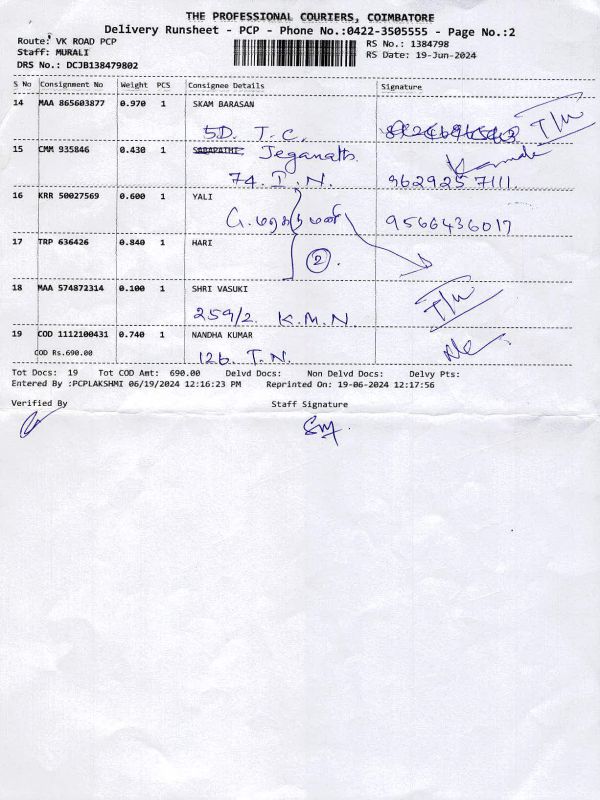 THE PROFESSIONAL COURIERS, COIMBATORE
Delivery Runsheet - PCP - Phone No.:0422-3505555 - Page No.:2
Route: VK ROAD PCP
RS No.: 1384798
Staff: MURALI
RS Date: 19-Jun-2024
DRS No.: DCJB138479802
S No Consignment No Weight PCS Consignee Details Signature
14 MAA 865603877 0.970 1 SKAM BARASAN
5D. T.C. T/W
15 CMM 935846 0.430 1 SABAPATHI Jeganath
74. I. N. 9629257111
16 KRR 50027569 0.600 1 YALI
9566436017
17 TRP 636426 0.840 1 HARI
2
18 MAA 574872314 0.100 1 SHRI VASUKI
259/2. K.M.N. T/W
19 COD 1112100431 0.740 1 NANDHA KUMAR
COD Rs.690.00 126. T.N.
Tot Docs: 19 Tot COD Amt: 690.00 Delvd Docs: Non Delvd Docs: Delvy Pts:
Entered By :PCPLAKSHMI 06/19/2024 12:16:23 PM Reprinted On: 19-06-2024 12:17:56
Verified By Staff Signature